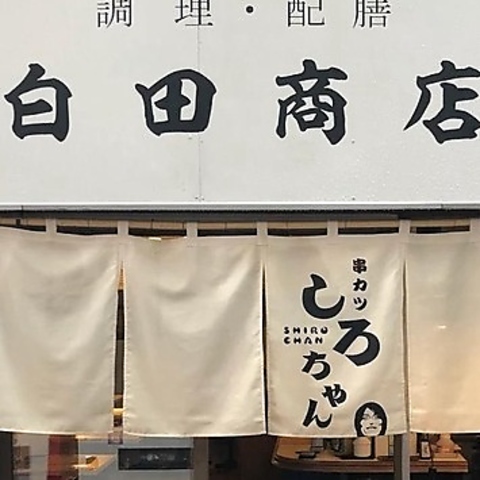 調理・配膳
白田商店
串カツ
しろ
SHIRO
CHAN
ちゃん